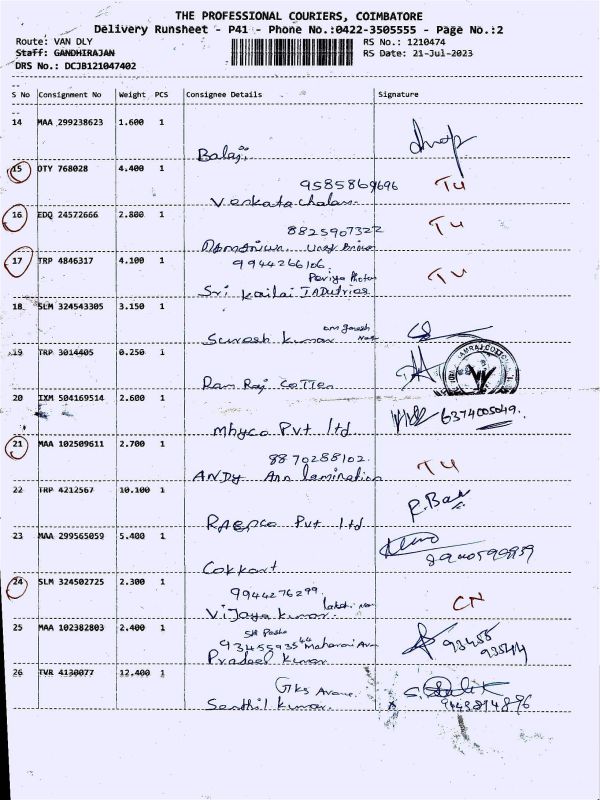 THE PROFESSIONAL COURIERS, COIMBATORE
Delivery Runsheet - P41 - Phone No.:0422-3505555 - Page No.:2
Route: VAN DLY RS No.: 1210474
Staff: GANDHIRAJAN RS Date: 21-Jul-2023
DRS No.: DCJB121047402
S No Consignment No Weight PCS Consignee Details Signature
14 MAA 299238623 1.600 1
Balaji
15 OTY 768028 4.400 1
9585869696 TU
Venkatachalam
16 EDQ 24572666 2.800 1 TU
8825907322
17 TRP 4846317 4.100 1
9944266106 TU
Sri Kailai
18 SLM 324543305 3.150 1
Suresh kumar
19 TRP 3014405 0.250 1
Ram Raj Cotten
20 IXM 504169514 2.600 1
6374005049.
Mhyco Pvt ltd
21 MAA 102509611 2.700 1
8870288102 TU
ANDY Ann lamination
22 TRP 4212567 10.100 1
R.Bas
RAEPCO Pvt ltd
23 MAA 299565059 5.400 1
Cokkart
24 SLM 324502725 2.300 1
9944276299 CN
Vijaya kumar
25 MAA 102382803 2.400 1
93455
93544
Pradeep kumar
26 TVR 4130077 12.400 1
GKS Avenue
Senthil kumar